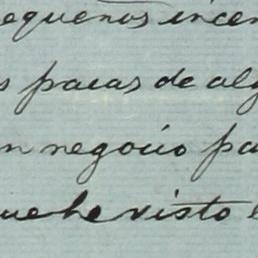 equeños incen
s pacas de alg
n negocio pa
que he visto